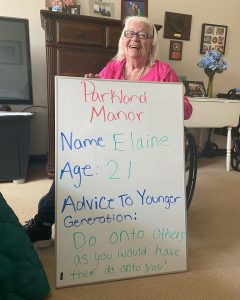 Parkland
Manor
Name Elaine
Age: 21
Advice To Younger
Generation:
Do onto others
as you would have
them do onto you!